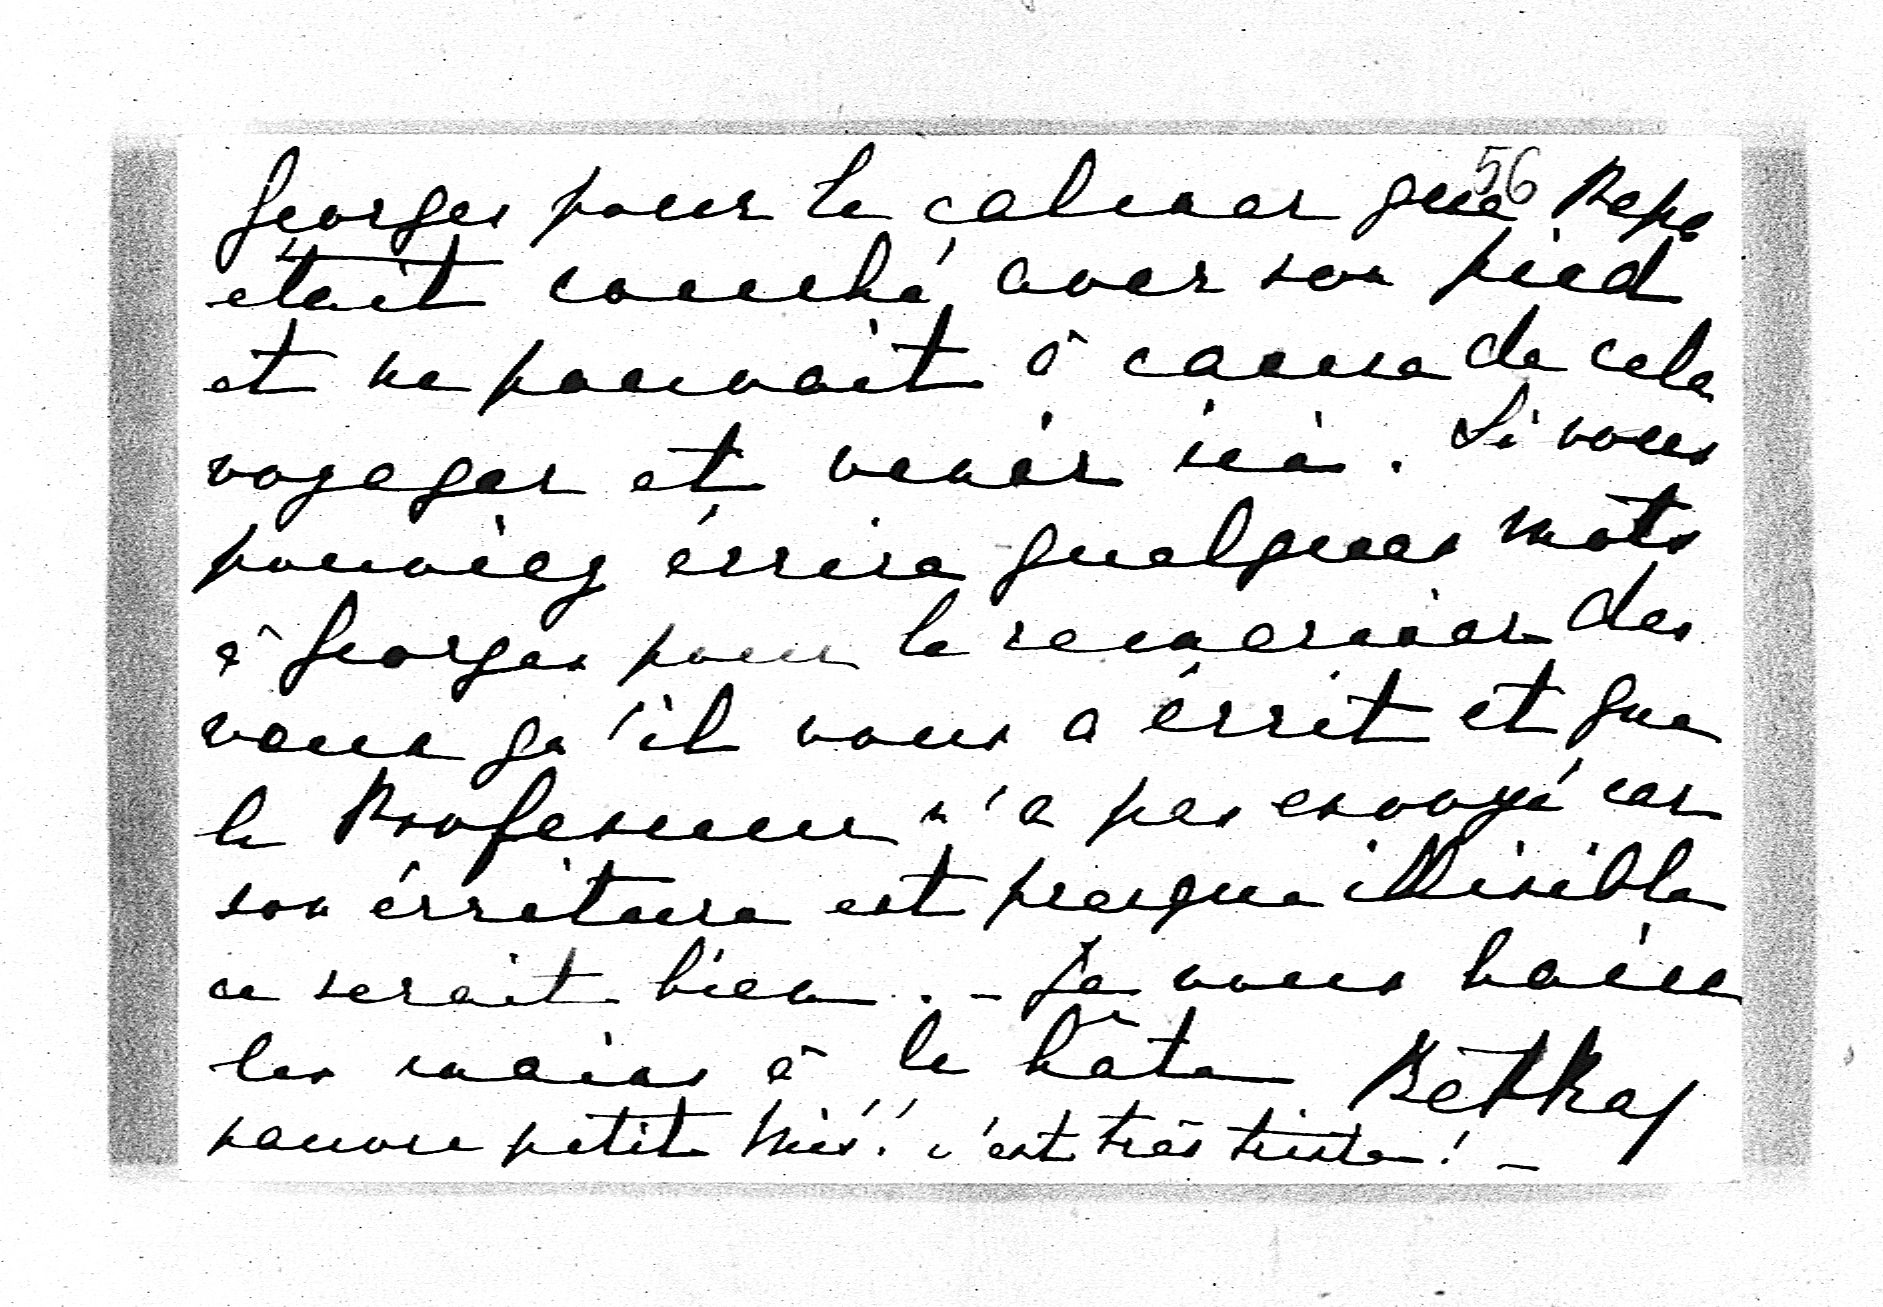 56
Georges pour le calmer que Papa
était couché avec son pied
et ne pouvait à cause de cela
voyager et venir ici. Si vous
pouviez écrire quelques mots
à Georges pour le remercier des
vœux qu'il vous a écrit et que
le Professeur n'a pas envoyé car
son écriture est presque illisible
ce serait bien. - Je vous baise
les mains à la hâte
pauvre petit ! c'est très triste ! -